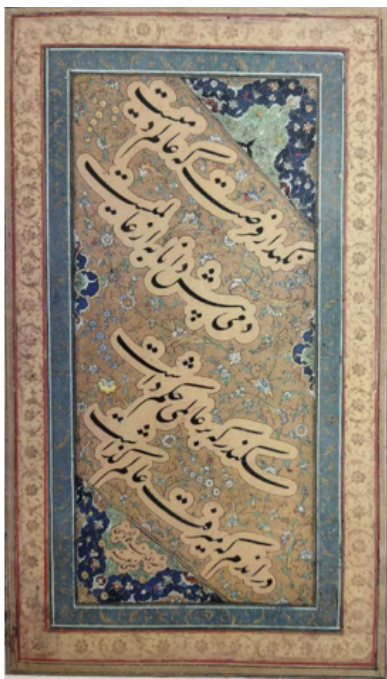 نگهدار فرصت که عالم دمیست
دمی پیش دانا به از عالمیست
سکندر که بر عالمی حکم داشت
در اندم که میرفت عالم گذاشت